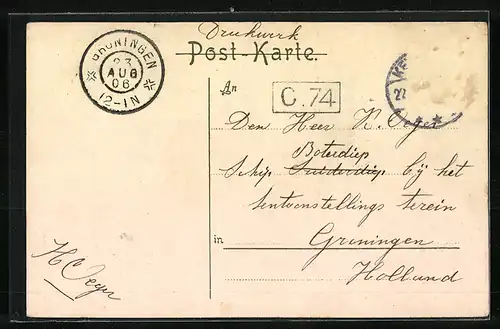 Drukwerk
Post-Karte.
GRONINGEN
23
AUG
06
12-1N
An
C.74
22
Den Heer K. Oeges
Boterdiep
Schip Zuiderdiep bij het
tentoonstellings terein
in Groningen
Holland
H Oeges